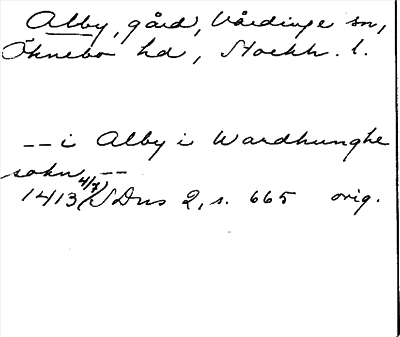 Alby, gård, Vårdinge sn,
Öknebo hd, Stockh. l.
-- i Alby i Wardhunghe
sokn --
1413 4/7, SDns 2, s. 665 orig.